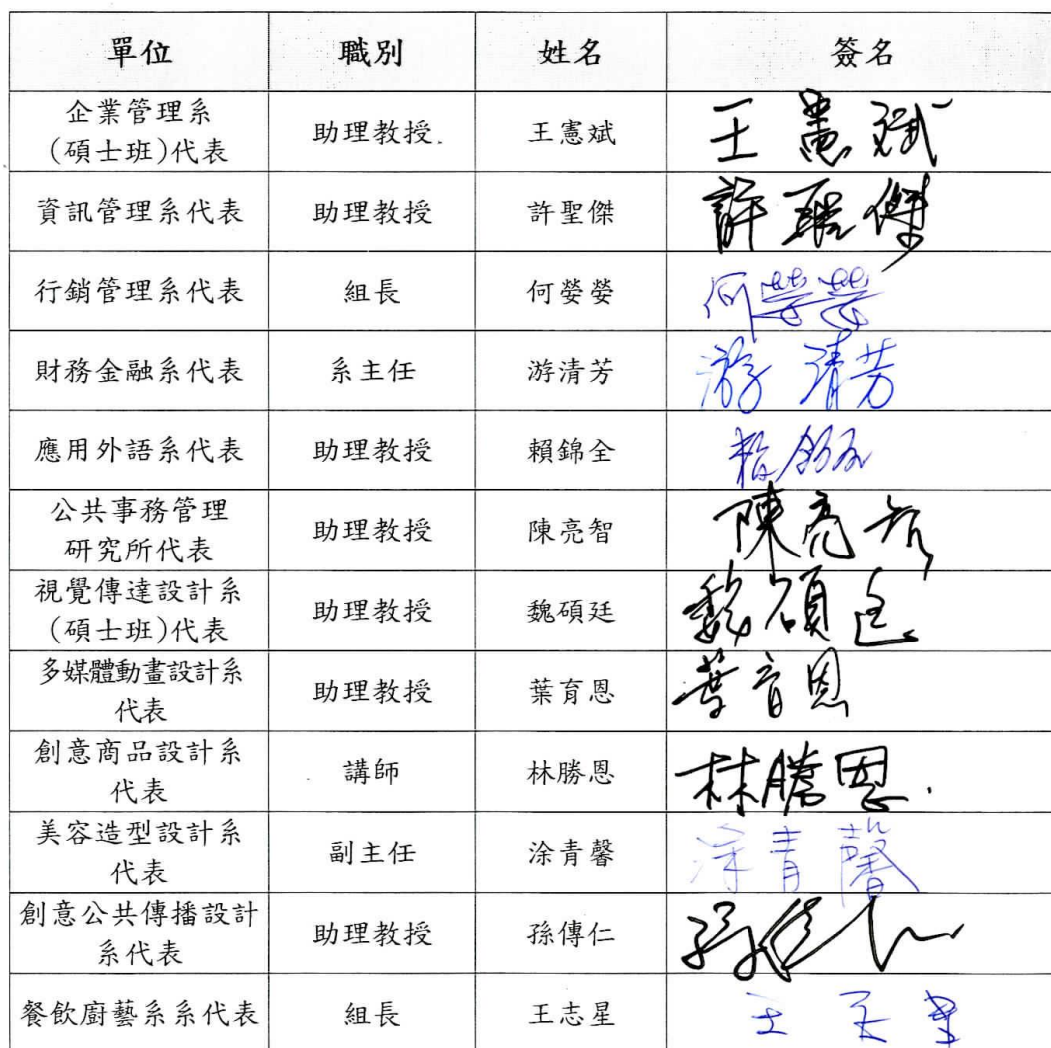 單位 職別 姓名 簽名
企業管理系
(碩士班)代表 助理教授 王憲斌 王憲斌
資訊管理系代表 助理教授 許聖傑 許聖傑
行銷管理系代表 組長 何嫈嫈 何嫈嫈
財務金融系代表 系主任 游清芳 游清芳
應用外語系代表 助理教授 賴錦全
公共事務管理
研究所代表 助理教授 陳亮智 陳亮智
視覺傳達設計系
(碩士班)代表 助理教授 魏碩廷 魏碩廷
多媒體動畫設計系
代表 助理教授 葉育恩 葉育恩
創意商品設計系
代表 講師 林勝恩 林勝恩
美容造型設計系
代表 副主任 涂青馨 涂青馨
創意公共傳播設計
系代表 助理教授 孫傳仁
餐飲廚藝系系代表 組長 王志星